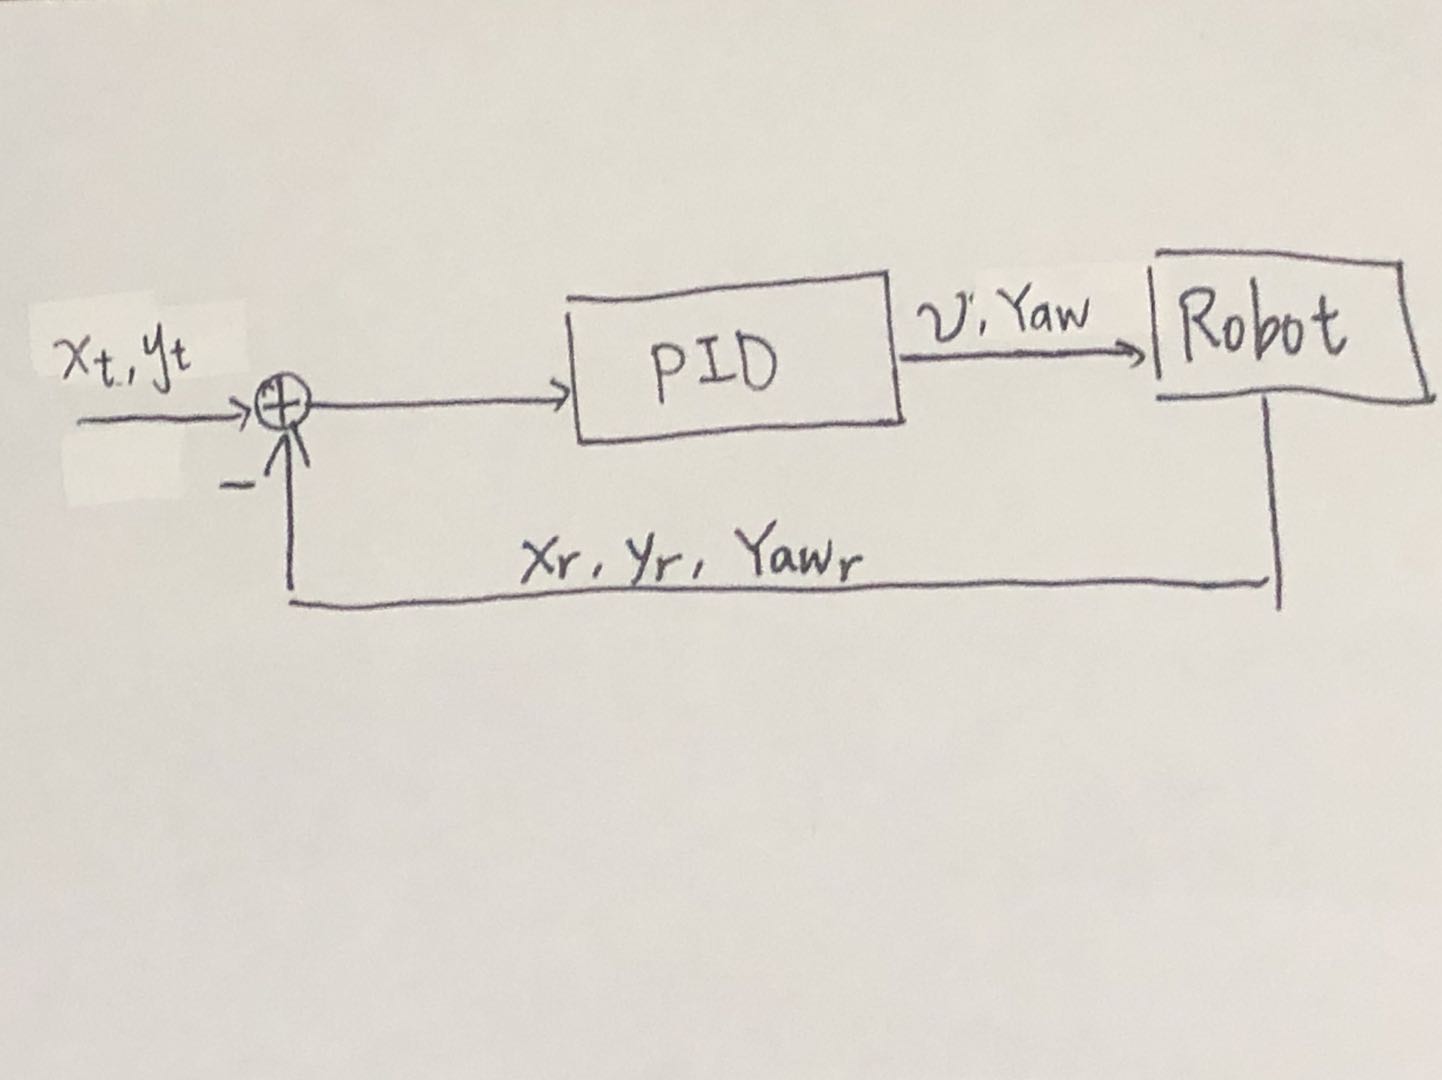 xt, yt
PID
v, Yaw
Robot
-
Xr, yr, Yawr